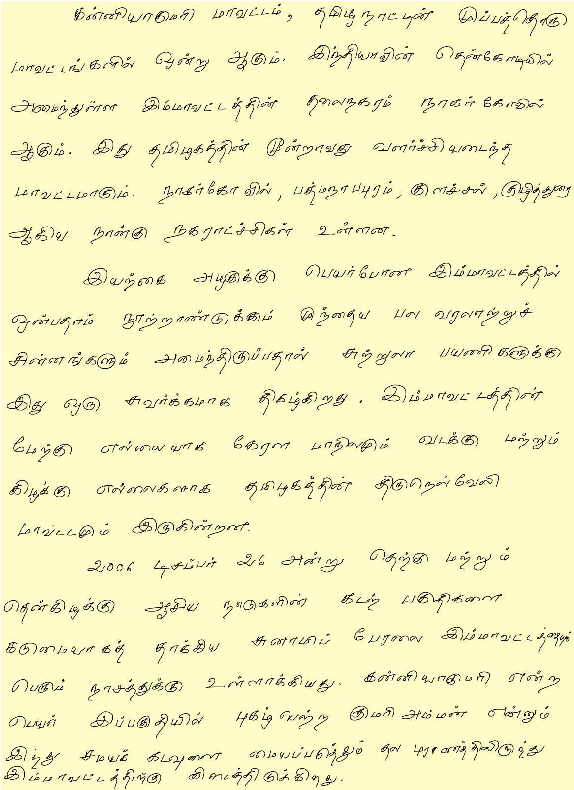 கன்னியாகுமரி மாவட்டம், தமிழ்நாட்டின் முப்பத்தொரு
மாவட்டங்களில் ஒன்று ஆகும். இந்தியாவின் தென்கோடியில்
அமைந்துள்ள இம்மாவட்டத்தின் தலைநகரம் நாகர்கோவில்
ஆகும். இது தமிழகத்தின் மூன்றாவது வளர்ச்சியடைந்த
மாவட்டமாகும். நாகர்கோவில், பத்மநாபபுரம், குளச்சல், குழித்துறை
ஆகிய நான்கு நகராட்ச்சிகள் உள்ளன.
இயற்கை அழகுக்கு பெயர்போன இம்மாவட்டத்தில்
ஒன்பதாம் நூற்றாண்டுக்கும் முந்தைய பல வரலாற்றுச்
சின்னங்களும் அமைந்திருப்பதால் சுற்றுலா பயணிகளுக்கு
இது ஒரு சுவர்க்கமாக திகழ்கிறது. இம்மாவட்டத்தின்
மேற்கு எல்லையாக கேரள மாநிலமும் வடக்கு மற்றும்
கிழக்கு எல்லைகளாக தமிழகத்தின் திருநெல்வேலி
மாவட்டமும் இருகின்றன.
2006 டிசம்பர் 26 அன்று தெற்கு மற்றும்
தென்கிழக்கு ஆசிய நாடுகளின் கடற் பகுதிகளை
கடுமையாகத் தாக்கிய சுனாமிப் பேரலை இம்மாவட்டத்தையும்
பெரும் நாசத்துக்கு உள்ளாக்கியது. கன்னியாகுமரி என்ற
பெயர் இப்பகுதியில் புகழ்பெற்ற குமரி அம்மன் என்னும்
இந்து சமயக் கடவுளை மையப்படுத்தும் தல புராணத்திலிருந்து
இம்மாவட்டத்திற்கு கிடைத்திடுக்கிறது.